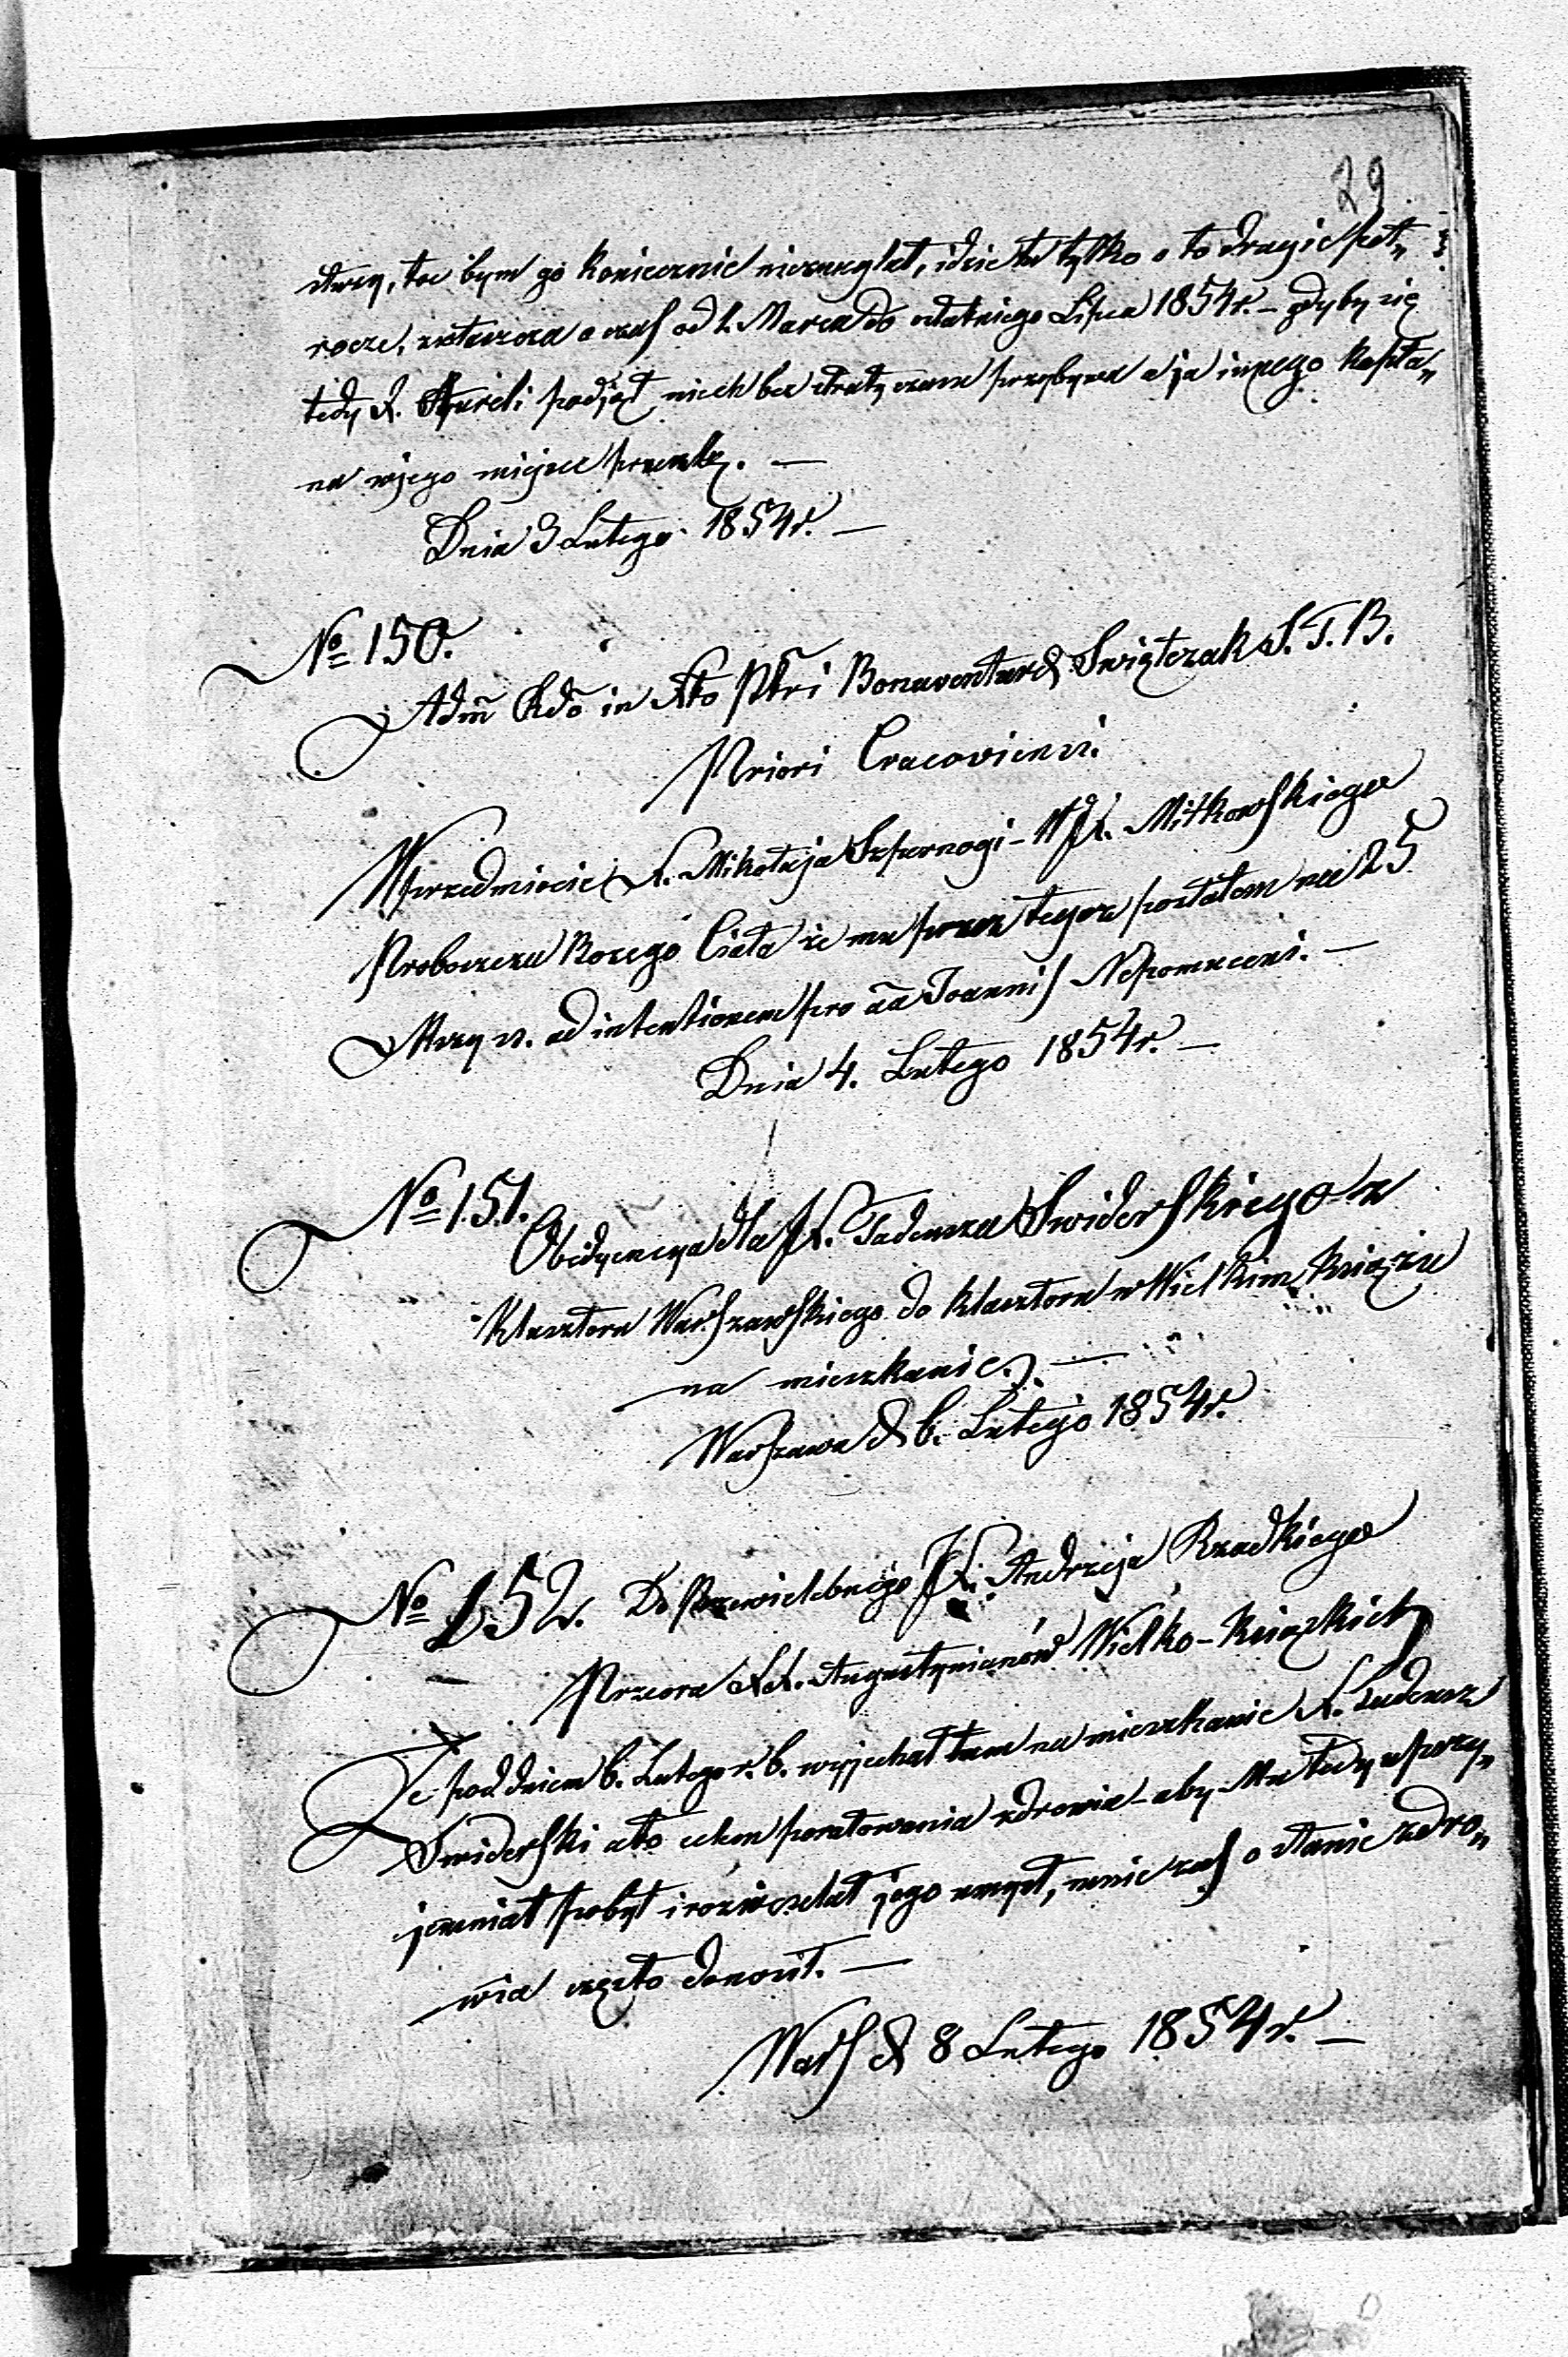 29
tę, toć bym go koniecznie nienaglał, idzie tu tylko o to drugie pół„
rocze, zwłaszcza o czas od 1. Marca do ostatniego Lipca 1854r. – gdyby się
tedy X. Aureli podjął niech bez straty czasu przybywa a ja innego kapła„
na w jego miejsce przeszlę. —
Dnia 3 Lutego 1854r. —
No 150.
Adm Rdo in Xto Ptri Bonaventurae Swiątczak S. T. B.
Priori Cracoviensi.
W przedmiocie X. Mikołaja Szpernogi – JX. Mitkowskiego
Proboszcza Bożego Ciała że mu przez tegoż posłałem na 25
Mszy s. ad intentionem pro aa Joannis Nepomuceni. —
Dnia 4. Lutego 1854r. —
No 151.
Obedyencya dla JX. Tadeusza Swiderskiego z
Klasztoru Warszawskiego do klasztoru w Wielkim Książu
na mieszkanie. —
Warszawa d 6. Lutego 1854r.
No 152. Do Przewielebnego JX. Andrzeja Rzadkiego
Przeora XX. Augustynianów Wielko-Książkich
Że pod dniem 6. Lutego r. b. wyjechał tam na mieszkanie X. Tadeusz
Swiderski a to celem poratowania zdrowia – aby Mu tedy uprzy„
jemniał pobyt i rozweselał jego umysł, mnie zaś o stanie zdro„
wia często donosił. —
Wars d 8 Lutego 1854r. —